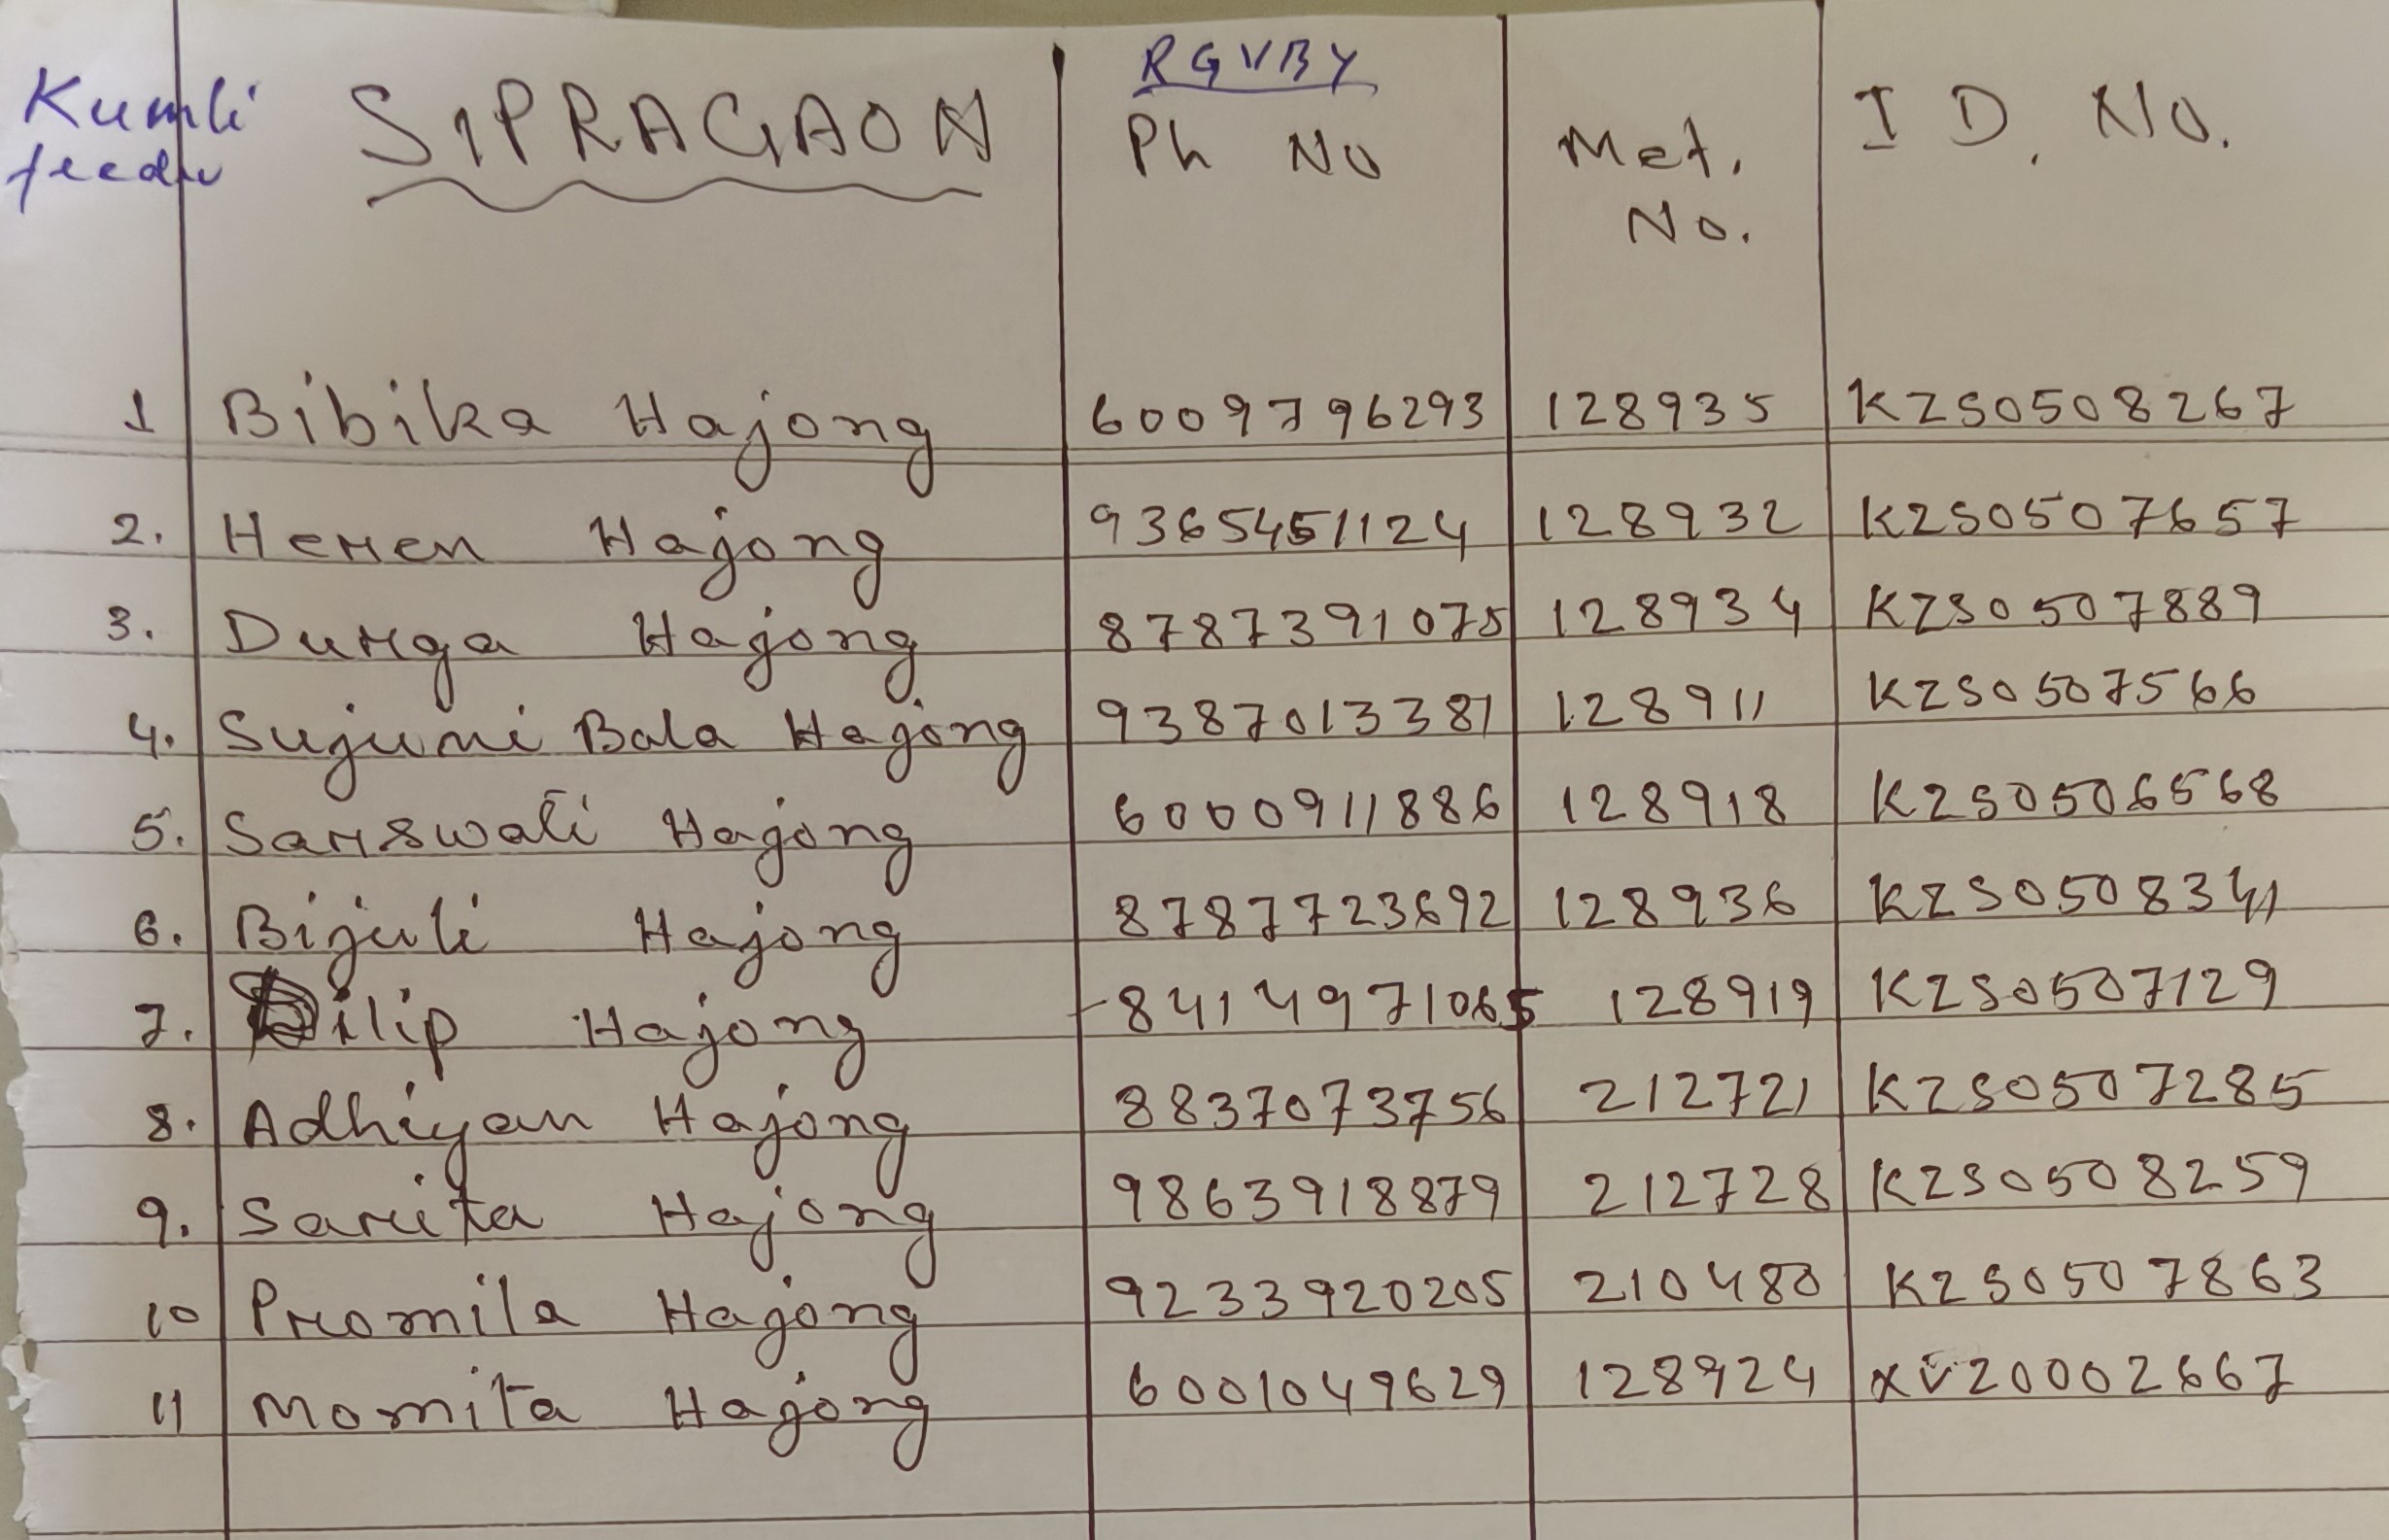 Kumli feeder
SIPRAGAON
RGVBY
Ph No
Met. No.
I D. No.
1 Bibika Hajong 6009796293 128935 KZS0508267
2. Heren Hajong 9365451124 128932 KZS0507657
3. Durga Hajong 8787391075 128934 KZS0507889
4. Sujuni Bala Hajong 9387013381 128911 KZS0507566
5. Sarswati Hajong 6000911886 128918 KZS0506568
6. Bijuli Hajong 8787723692 128936 KZS0508341
7. Dilip Hajong 8414971065 128919 KZS0507129
8. Adhiyan Hajong 8837073756 212721 KZS0507285
9. Sarita Hajong 9863918879 212728 KZS0508259
10 Promila Hajong 9233920205 210480 KZS0507863
11 Momita Hajong 6001049629 128924 XVZ0002667